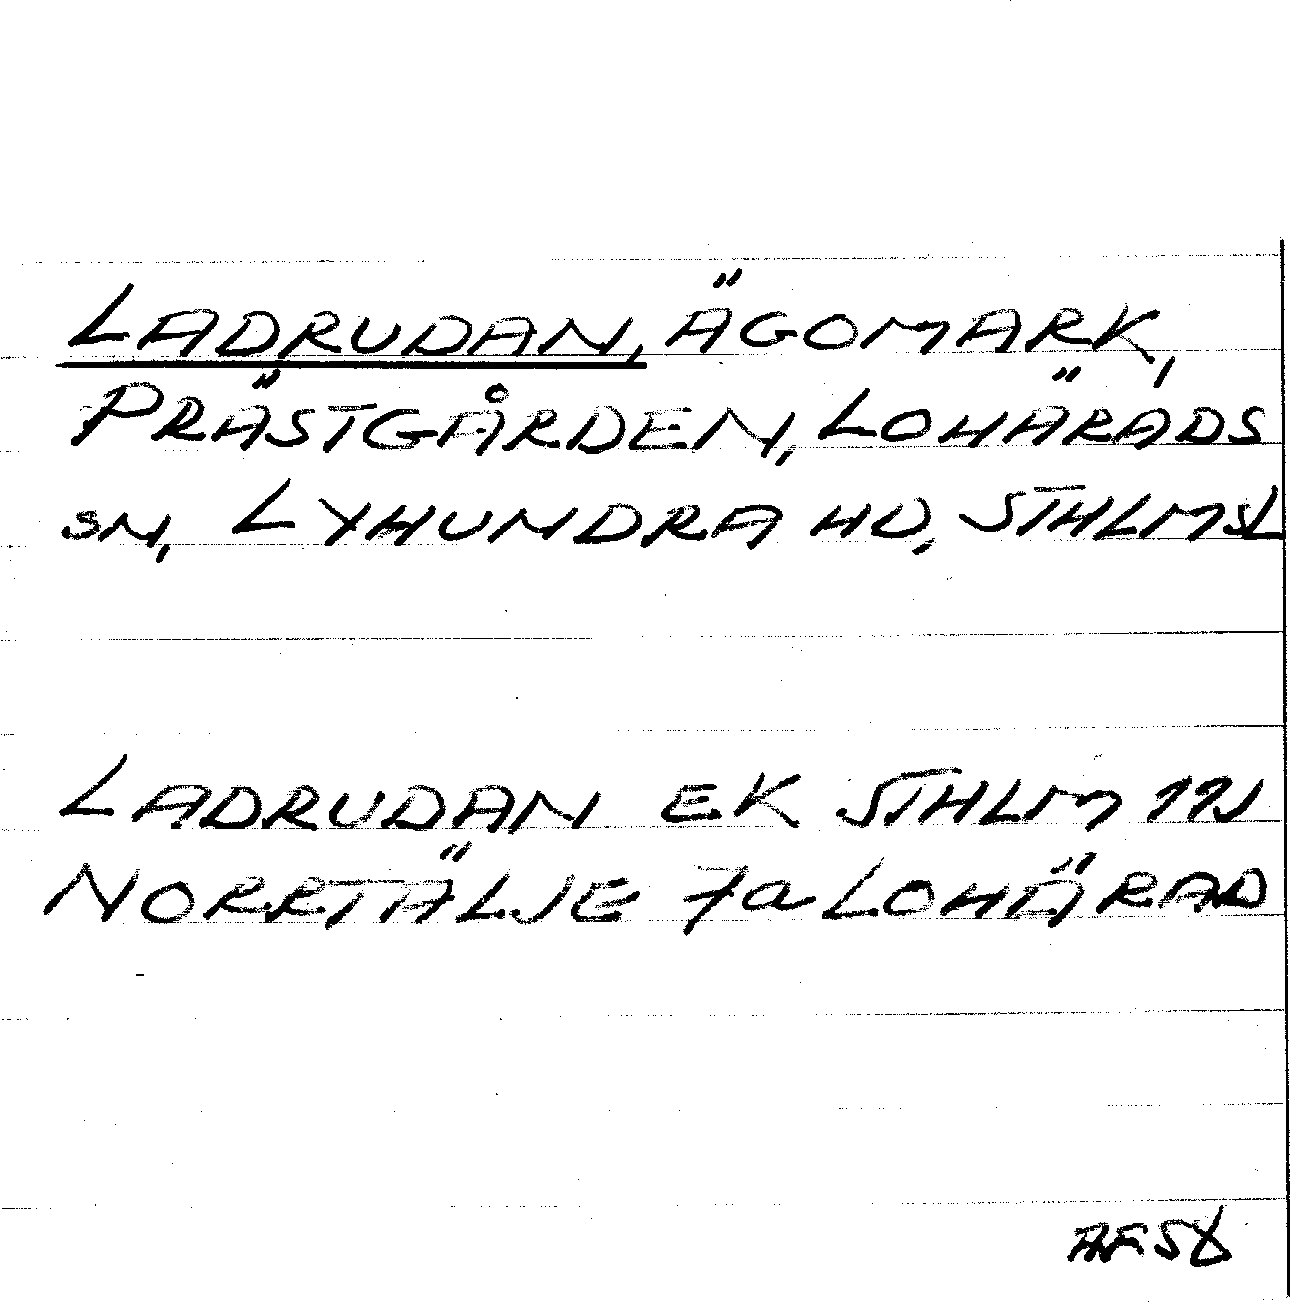 LADRUDAN, ÄGOMARK,
PRÄSTGÅRDEN, LOHÄRADS
SN, LYHUNDRA HD, STHLMSL
LADRUDAN EK STHLM 11J
NORRTÄLJE 7a LOHÄRAD